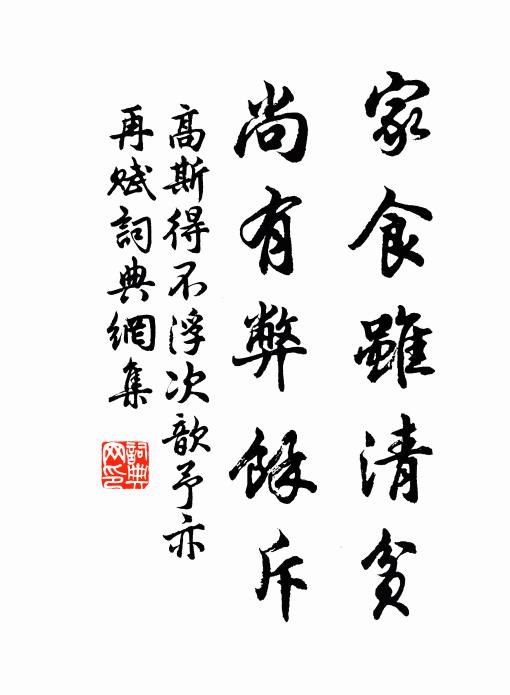 家食雖清貧
尚有弊餘斥
高斯得不浮次歆予亦
再賦詞典網集
詞典網印